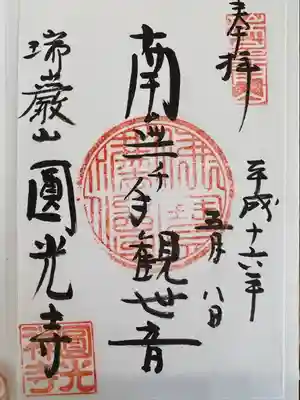 奉拝
平成十六年
五月八日
南無千手観世音
瑞巌山圓光寺